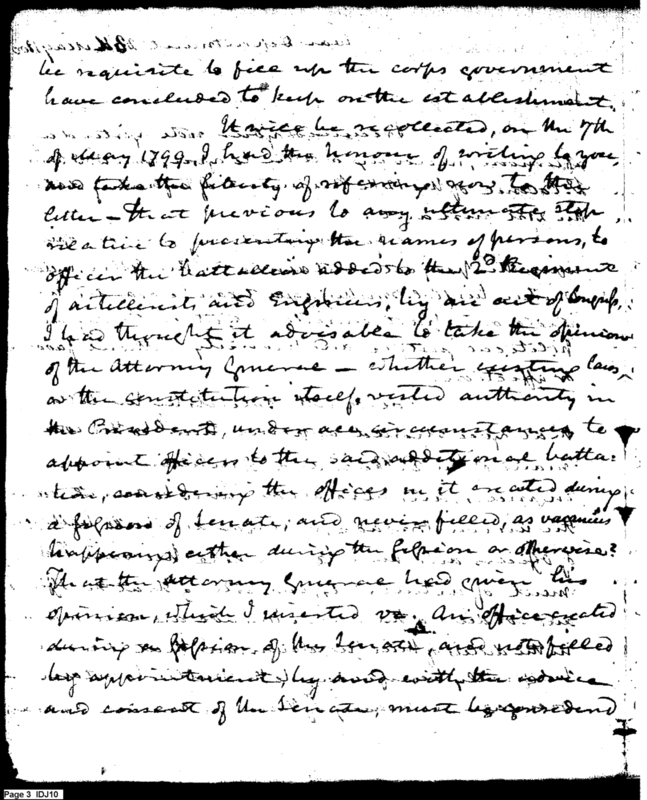 be requisite to fill up the corps government
have concluded to keep on the establishment.
It will be recollected, on the 7th
of May 1799. I had the honour of writing to you,
and take the liberty of refering now to the
letter – that previous to any ultimate step
relative to presenting the names of persons, to
officer the battalion added to the 2d Regiment
of artillerists and Engineers, by an act of Congress,
I had thought it advisable to take the opinion
of the Attorney General – whether existing laws,
or the constitution itself, vested authority in
the President, under all circumstances to
appoint officers to the said additional batta-
lion, considering the offices in it created during
a session of Senate, and never filled, as vacancies
happening either during the session or otherwise?
That the Attorney General had given his
opinion, which I inserted vz. An office created
during a session of the Senate, and not filled
by appointment, by and with the advice
and consent of the Senate, must be considered
Page 3 IDJ10